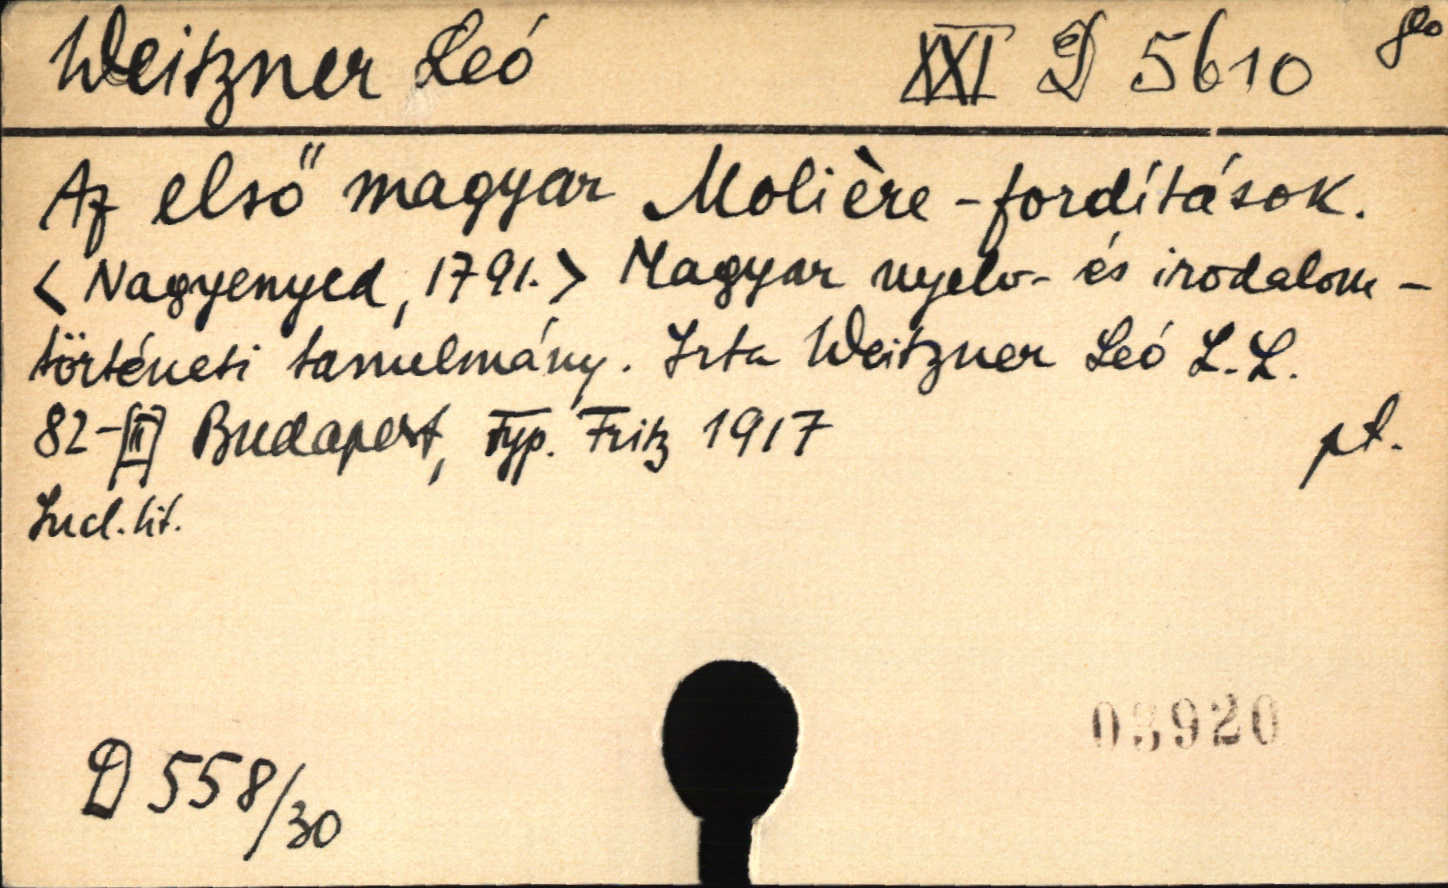 Weitzner Leó XXI D 5610
Az első magyar Molière-fordítások.
<Nagyenyed, 1791.> Magyar nyelv- és irodalom-
történeti tanulmány. Irta Weitzner Leó L.L.
82-[II] Budapest, Typ. Fritz 1917 pt.
Incl. lit.
03920
D 558/30